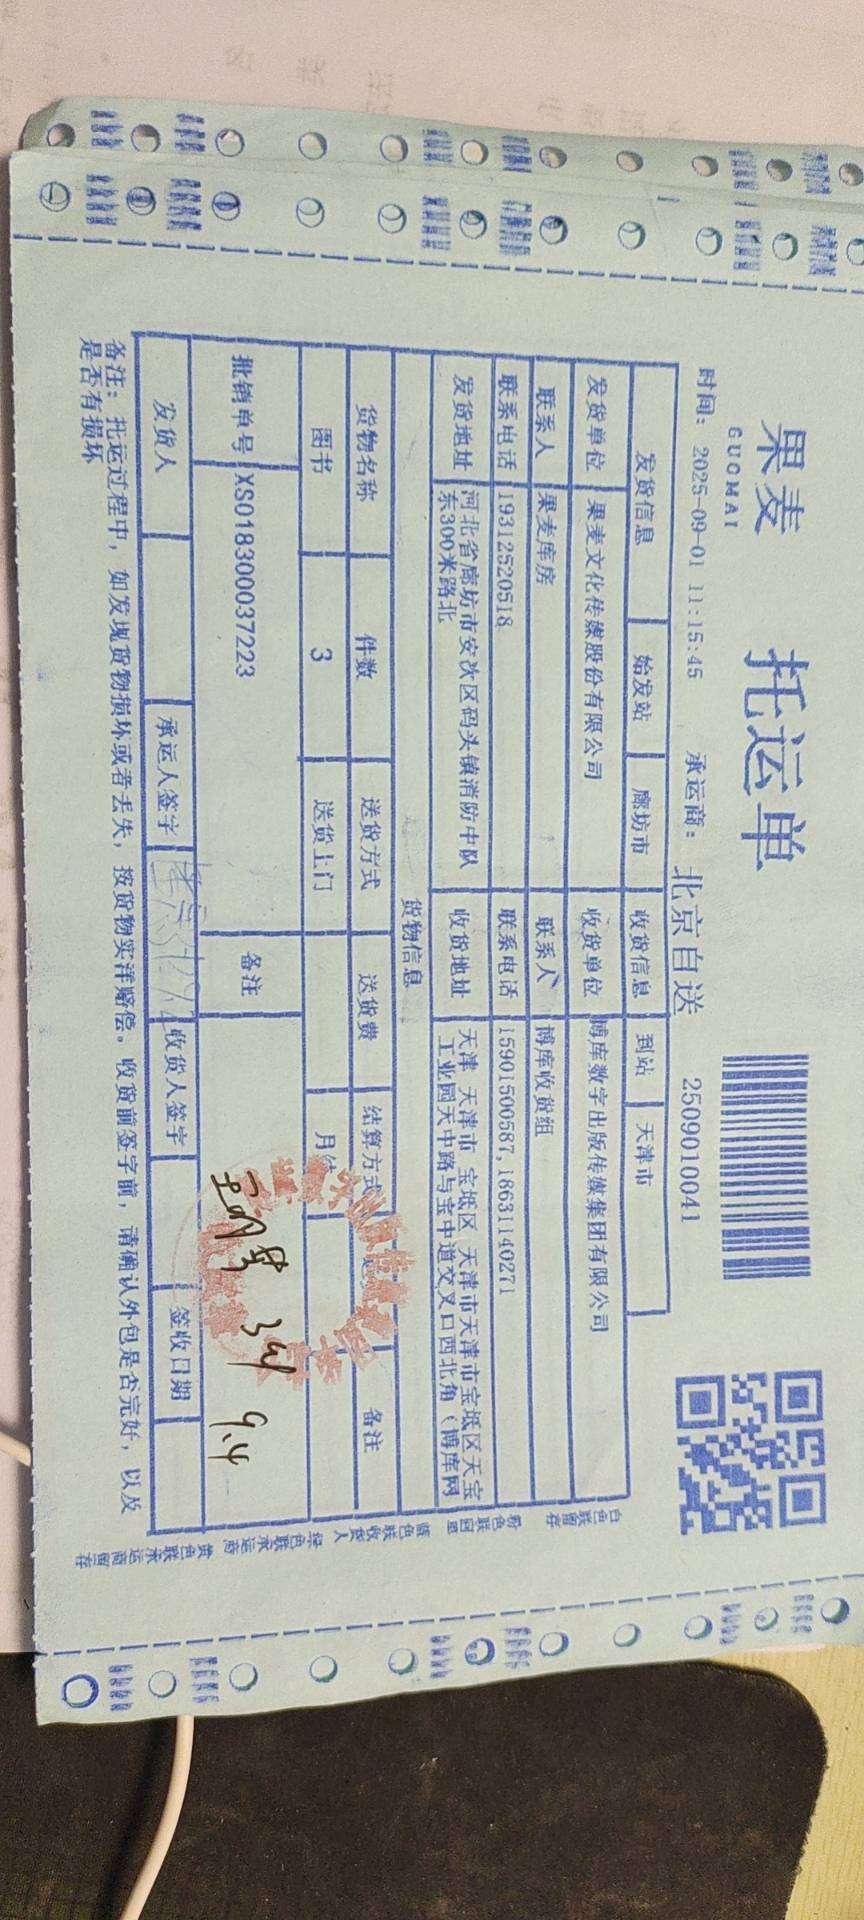 果麦
GUOMAI
托运单
时间: 2025-09-01 11:15:45 承运商: 北京自送 2509010041
发货信息 始发站 廊坊市 收货信息 到站 天津市
发货单位 果麦文化传媒股份有限公司 收货单位 博库数字出版传媒集团有限公司
联系人 果麦库房 联系人 博库收货组
联系电话 19312520518 联系电话 15901500587,18631140271
发货地址 河北省廊坊市安次区码头镇消防中队 收货地址 天津 天津市 宝坻区 天津市天津市宝坻区天宝
东300米路北 工业园天中路与宝中道交叉口西北角（博库网
货物信息
货物名称 件数 送货方式 送货费 结算方式 备注
图书 3 送货上门 月结
批销单号 XS018300037223 备注
3件 9.4
发货人 承运人签字 收货人签字 签收日期
备注: 托运过程中, 如发现货物损坏或者丢失, 按货物实洋赔偿。收货前签字前, 请确认外包是否完好, 以及
是否有损坏
白色联留存 粉色联回单 蓝色联收货人 绿色联承运商 黄色联承运商留存